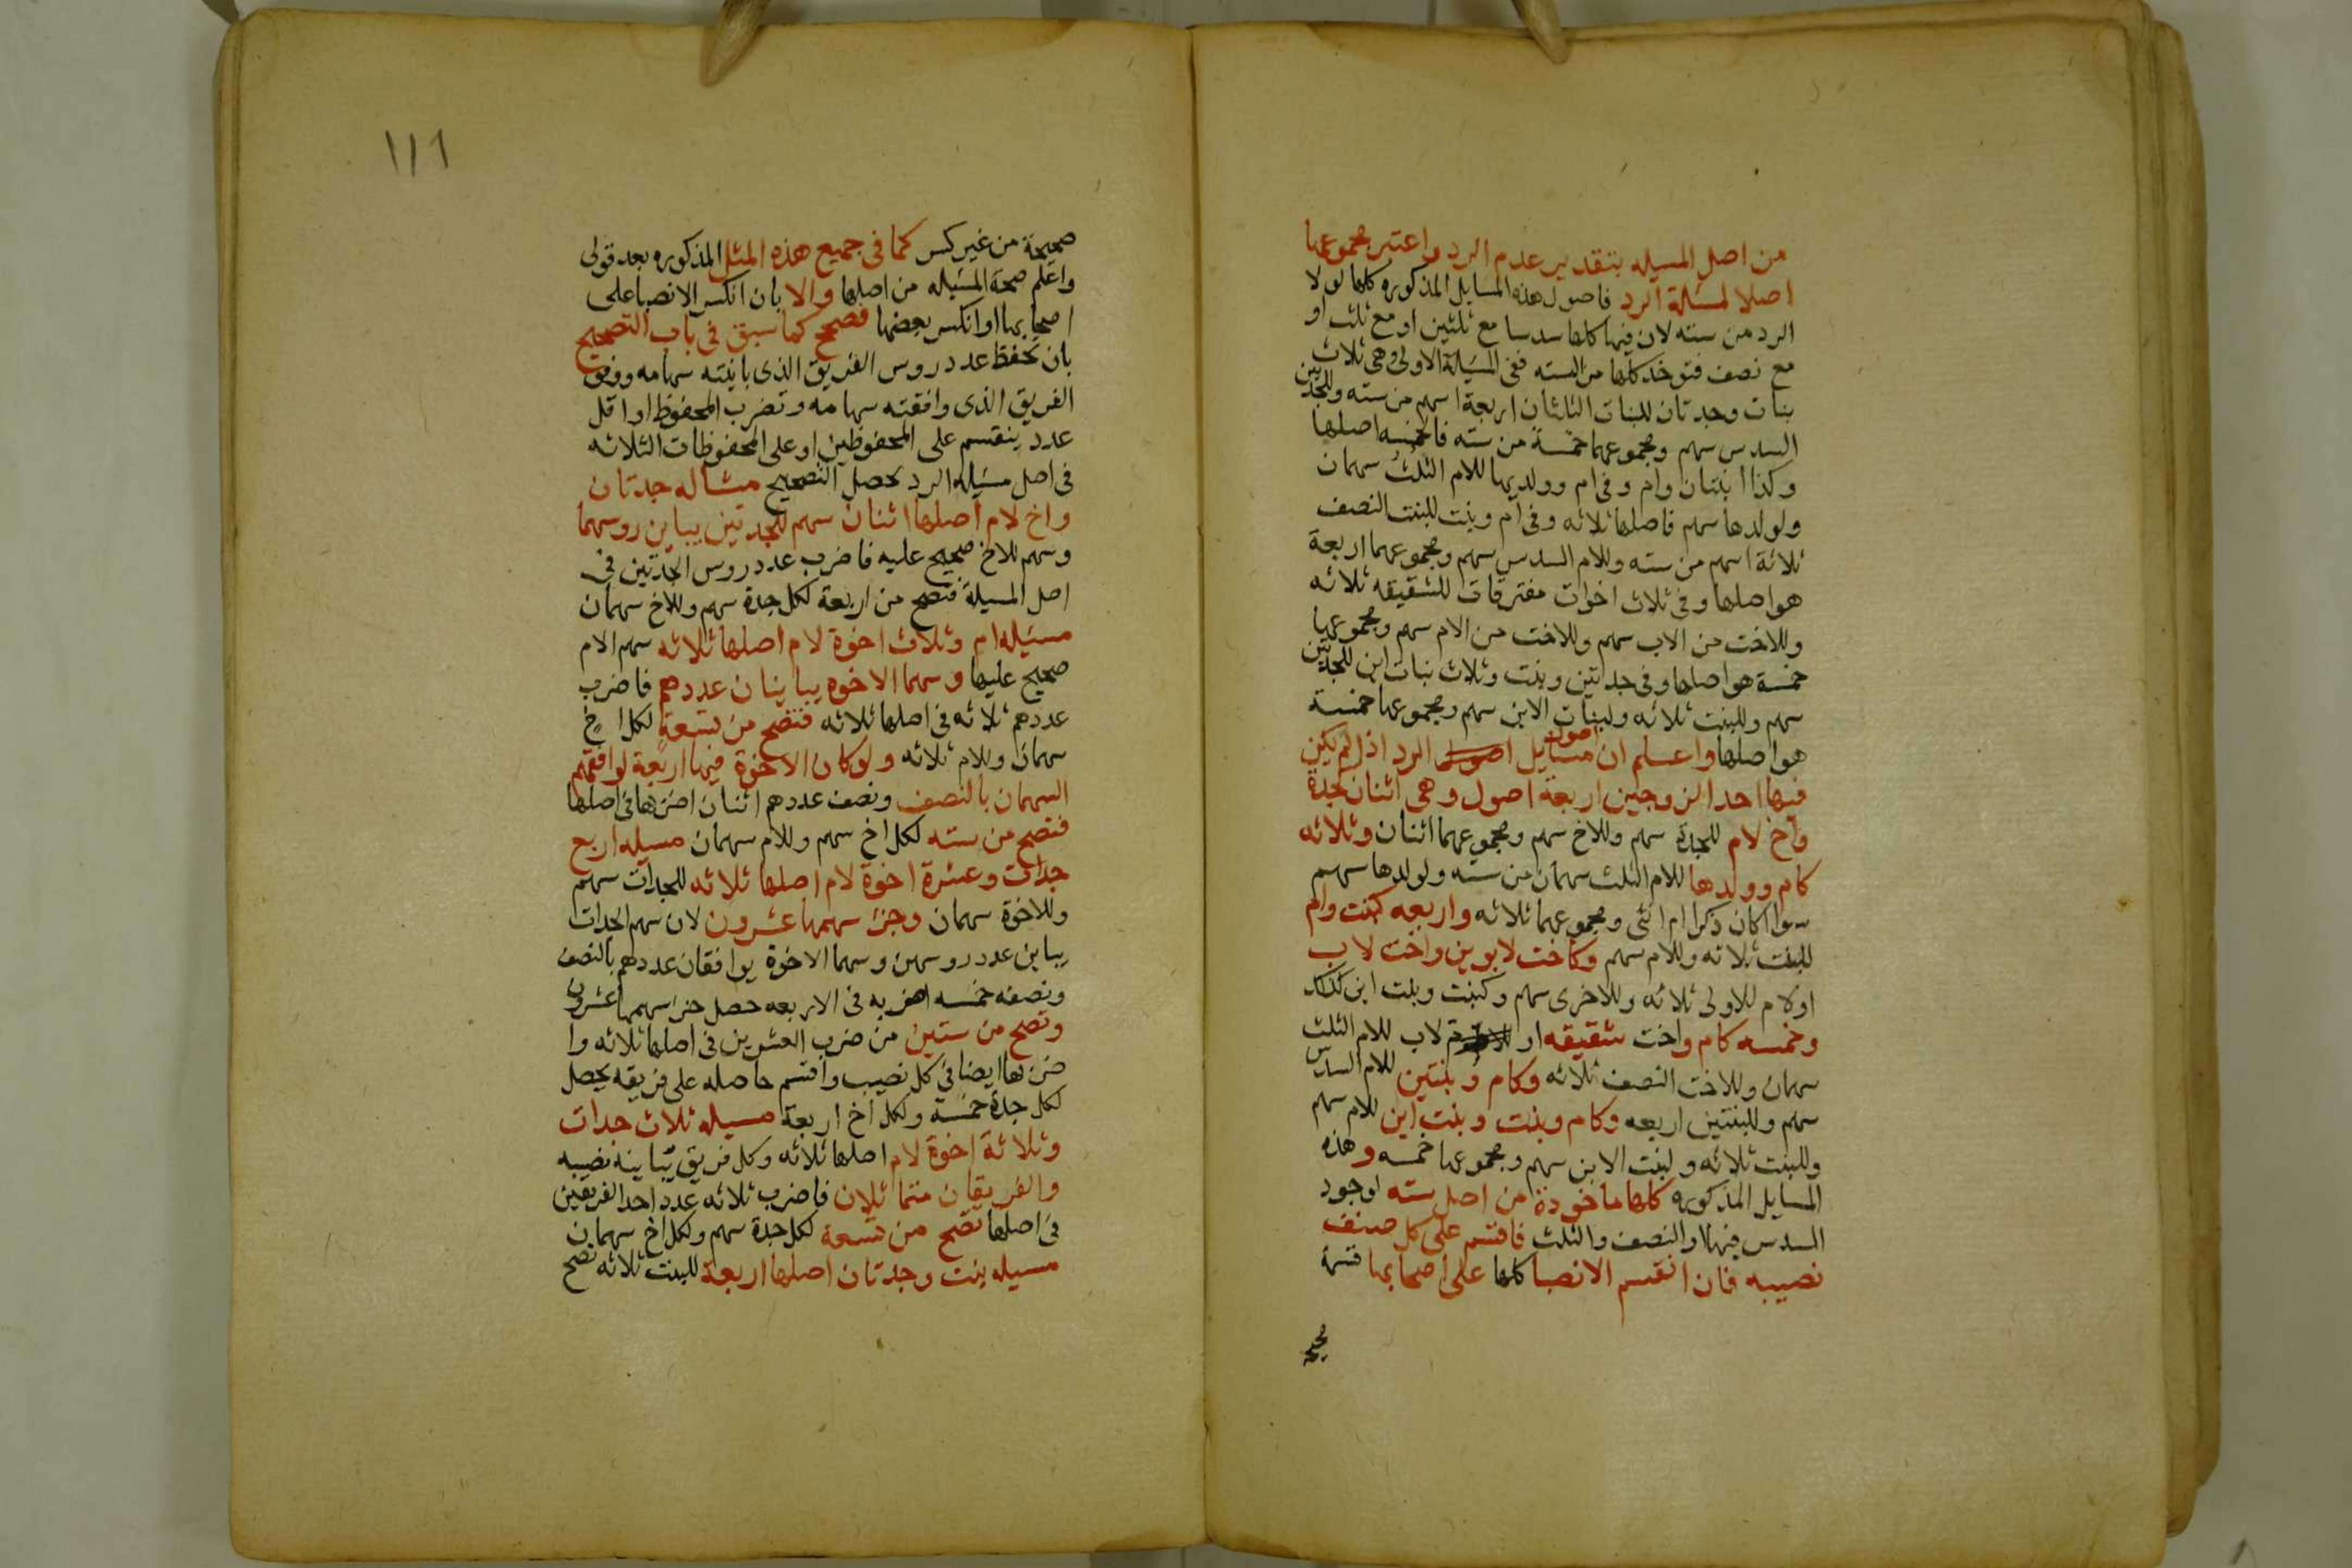 من اصل المسيله بتقدير عدم الرد واعتبر مجموعها
اصلا لمسئلة الرد فاصول هذه المسايل المذكوره كلها لولا
الرد من سته لان فيها كلها سدسا مع ثلثين او مع ثلث او
مع نصف فتوخذ كلها من السته ففي المسيلة الاولى وهي ثلاث
بنات وجدتان للبنات الثلثان اربعة اسهم من سته وللجدتين
السدس سهم ومجموعهما خمسة من سته فالخمسه اصلها
وكذا ابنتان وام وفي ام وولديها للام الثلث سهمان
ولولدها سهم فاصلها ثلاثه وفي ام وبنت للبنت النصف
ثلاثة اسهم من سته وللام السدس سهم ومجموعهما اربعة
هو اصلها وفي ثلاث اخوات مفترقات للشقيقه ثلاثه
وللاخت من الاب سهم وللاخت من الام سهم ومجموعها
خمسة هو اصلها وفي جدتين وبنت وثلاث بنات ابن للجدتين
سهم وللبنت ثلاثه ولبنات الابن سهم ومجموعها خمسة
هو اصلها واعلم ان اصول مسايل الرد اذا لم يكن
فيها احد الزوجين اربعة اصول وهي اثنان كجدة
واخ لام للجدة سهم وللاخ سهم ومجموعهما اثنان وثلاثه
كام وولدها للام الثلث سهمان من سته ولولدها سهم
سوا كان ذكرا ام انثى ومجموعهما ثلاثه واربعه كبنت وام
للبنت ثلاثه وللام سهم وكاخت لابوين واخت لاب
او لام للاولى ثلاثه وللاخرى سهم وكبنت وبنت ابن كذلك
وخمسه كام واخت شقيقه او لاب للام الثلث
سهمان وللاخت النصف ثلاثه وكام وبنتين للام السدس
سهم وللبنتين اربعه وكام وبنت وبنت ابن للام سهم
وللبنت ثلاثه ولبنت الابن سهم ومجموعها خمسه وهذه
المسايل المذكوره كلها ماخوذة من اصل سته لوجود
السدس فيها او النصف والثلث فاقسم على كل صنف
نصيبه فان انقسم الانصبا كلها على اصحابها قسمة
صحيحة
١١٦
صحيحة من غير كسر كما في جميع هذه المثل المذكوره بعد قولي
واعلم صحة المسيله من اصلها والا بان انكسر الانصبا على
اصحابها او انكسر بعضها فصحح كما سبق في باب التصحيح
بان تحفظ عدد روس الفريق الذي باينته سهامه ووفق
الفريق الذي وافقته سهامه وتضرب المحفوظ او اقل
عدد ينقسم على المحفوظين او على المحفوظات الثلاثه
في اصل مسيله الرد يحصل التصحيح مثاله جدتان
واخ لام اصلها اثنان سهم للجدتين يباين روسهما
وسهم للاخ صحيح عليه فاضرب عدد روس الجدتين في
اصل المسيلة فتصح من اربعة لكل جدة سهم وللاخ سهمان
مسيله ام وثلاث اخوة لام اصلها ثلاثه سهم الام
صحيح عليها وسهما الاخوه يباينان عددهم فاضرب
عددهم ثلاثه في اصلها ثلاثه فتصح من تسعة لكل اخ
سهمان وللام ثلاثه ولو كان الاخوة فيها اربعة لوافقهم
السهمان بالنصف ونصف عددهم اثنان اضربها في اصلها
فتصح من سته لكل اخ سهم وللام سهمان مسيله اربع
جدات وعشرة اخوة لام اصلها ثلاثه للجدات سهم
وللاخوة سهمان وجز سهمها عشرون لان سهم الجدات
يباين عدد روسهن وسهما الاخوة يوافقان عددهم بالنصف
ونصفه خمسه اضربه في الاربعه حصل جز سهمها عشرون
وتصح من ستين من ضرب العشرين في اصلها ثلاثه وا
ضربها ايضا في كل نصيب واقسم حاصله على فريقه يحصل
لكل جدة خمسة ولكل اخ اربعة مسيله ثلاث جدات
وثلاثة اخوة لام اصلها ثلاثه وكل فريق يباينه نصيبه
والفريقان متماثلان فاضرب ثلاثه عدد احد الفريقين
في اصلها تصح من تسعة لكل جدة سهم ولكل اخ سهمان
مسيله بنت وجدتان اصلها اربعة للبنت ثلاثه تصح